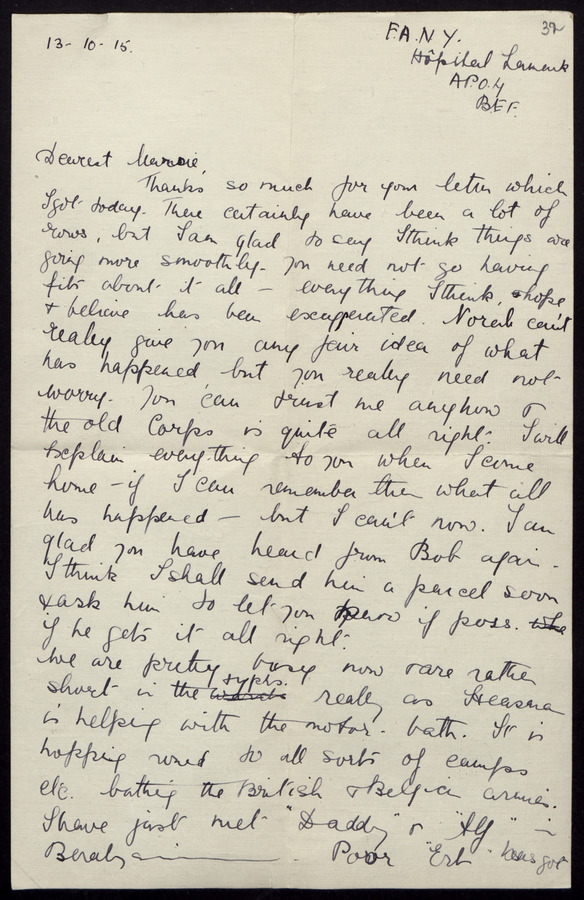 32
13-10-15.
F.A.N.Y.
Hôpital Lamark
A.P.O. 4
B.E.F.
Dearest
Thanks so much for your letter which
I got today. There certainly have been a lot of
rows, but I am glad to say I think things are
going more smoothly. You need not go having
fits about it all – everything I think, & hope
& believe has been exaggerated. Norah can't
really give you any fair idea of what
has happened but you really need not
worry. You can trust me anyhow &
the old Corps is quite all right. I will
explain everything to you when I come
home – if I can remember then what all
has happened – but I can't now. I am
glad you have heard from Bob again.
I think I shall send him a parcel soon
& ask him to let you know if poss.
if he gets it all right.
We are pretty busy now & are rather
short in the typhs. really as Heasna
is helping with the motor-bath. It is
hopping round to all sorts of camps
etc. bathing the British & Belgian armies.
I have just met "Daddy" & "Alf" –
Poor "Erb" has got